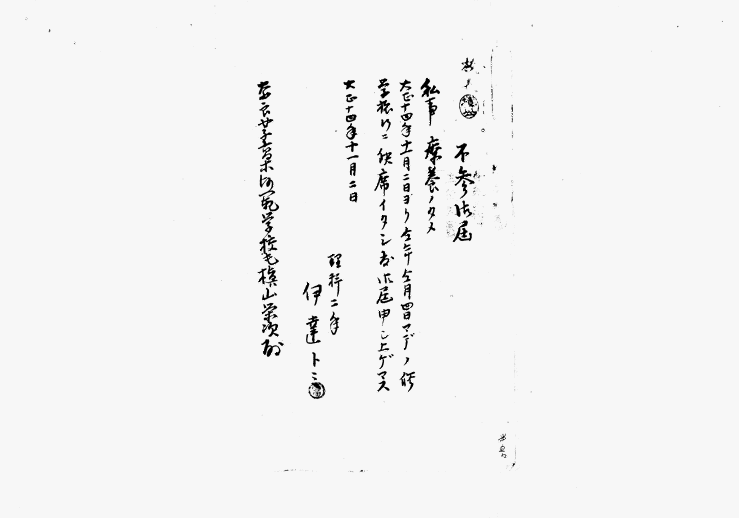 不参御届
私事 療養ノタメ
大正十四年十一月二日ヨリ仝年仝月四日マデノ
学校行ニ欠席イタシ度御届申シ上ゲマス
大正十四年十一月二日
理科二年
伊達トミ
学校長横山栄次殿